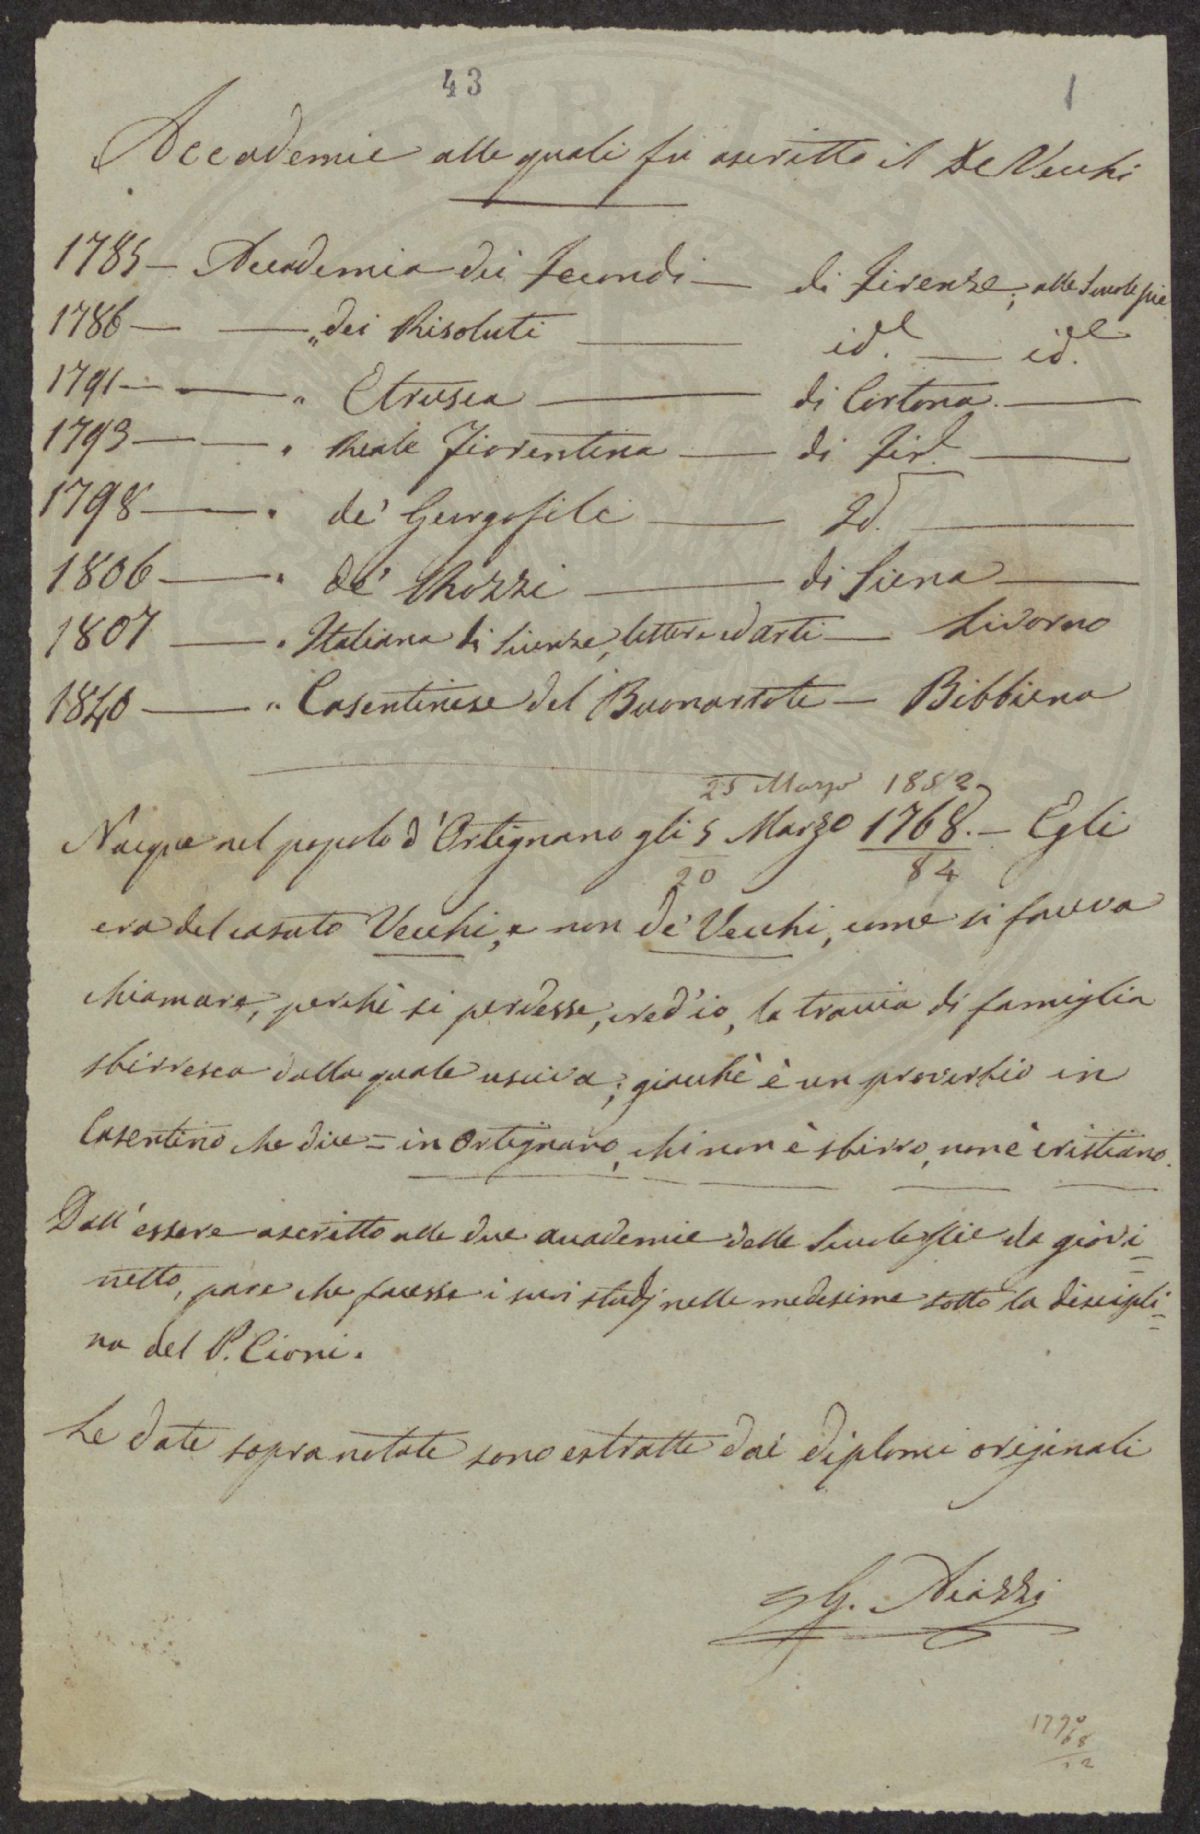 43
1
Accademie alle quali fu ascritto il De Vecchi
1785 — Accademia dei Fecondi — di Firenze; alle Scuole pie
1786 — — „ dei Risoluti — id.e — id.e
1791 — — „ Etrusca — di Cortona. —
1793 — — „ Reale Fiorentina — di Fir.e —
1798 — „ de' Georgofili — Id. —
1806 — „ de' Rozzi — di Siena —
1807 — „ Italiana di Scienze, lettere ed arti — Livorno
1840 — „ Casentinese del Buonarroti — Bibbiena
25 Marzo 1852
Nacque nel popolo d'Ortignano gli 5 Marzo 1768. — Egli
20 84
era del casato Vecchi, e non de' Vecchi, come si faceva
chiamare, perchè si perdesse, cred'io, la traccia di famiglia
sbirresca dalla quale usciva; giacchè è un proverbio in
Casentino che dice = in Ortignano, chi non è sbirro, non è cristiano.
Dall'essere ascritto alle due accademie delle Scuole Pie da giovi=
netto, pare che facesse i suoi studj nelle medesime sotto la discipli=
na del P. Cioni.
Le date sopra notate sono estratte dai diplomi originali
G. Aiazzi
1790
68
12